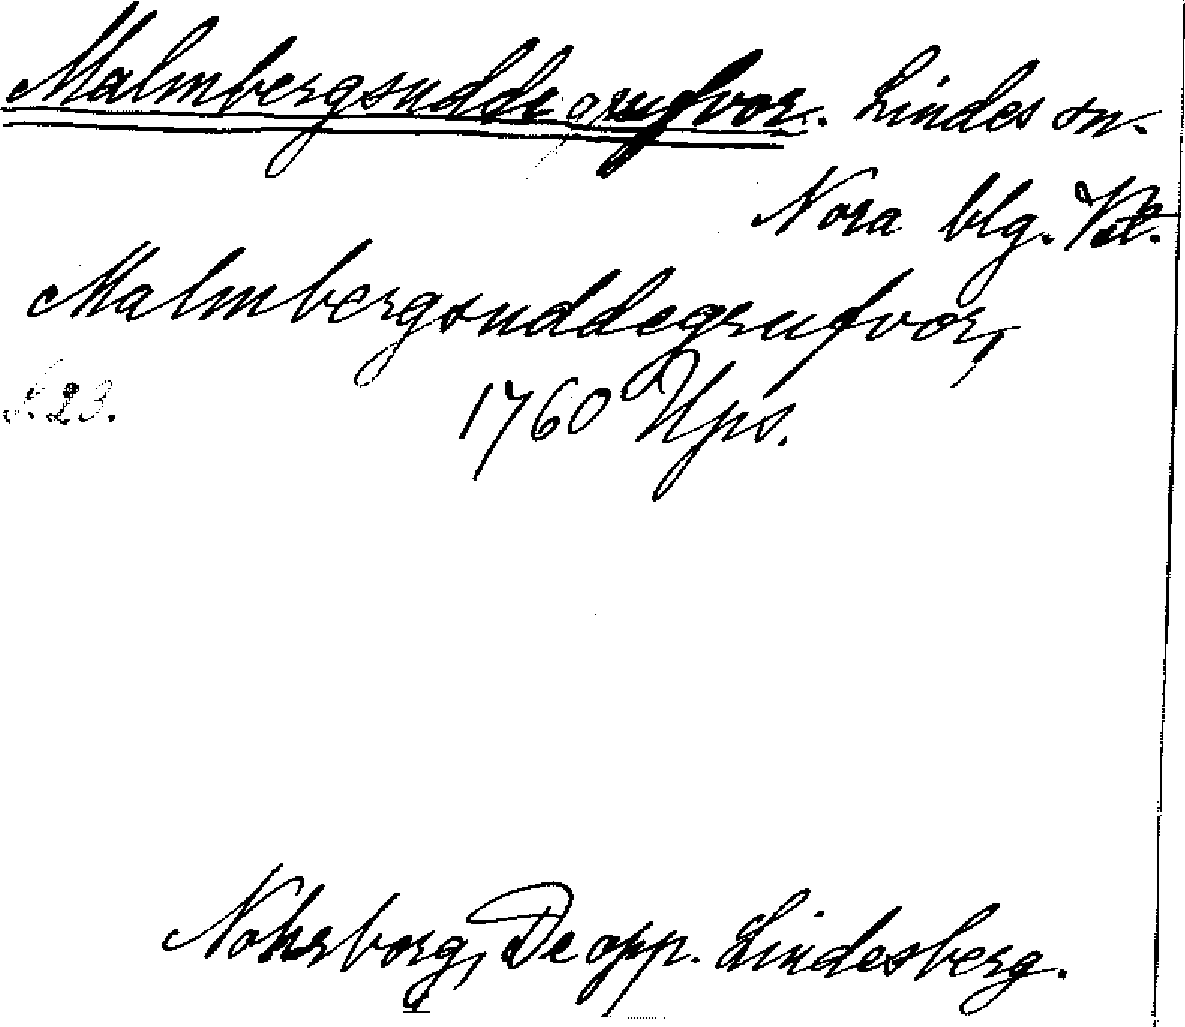 Malmbergsuddegrufvor. Lindes sn.
Nora blg. Vstl.
Malmbergsuddegrufvor,
S. 23. 1760 Ups.
Nohrborg, De opp. Lindesberg.